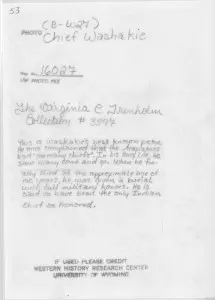 53
(B-W27)
PHOTO Chief Washakie
Neg No. 16027
The Virginia C Trenholm
Collection # 3597
This is Washakie's best known picture
He once complained that the
had "so many chiefs". In his long life he
saw many come and go. When he fin-
ally died at the approximate age of
100 years, he was given a burial
with full military honors. He is
said to have been the only Indian
Chief so honored.
IF USED PLEASE CREDIT
WESTERN HISTORY RESEARCH CENTER
UNIVERSITY OF WYOMING